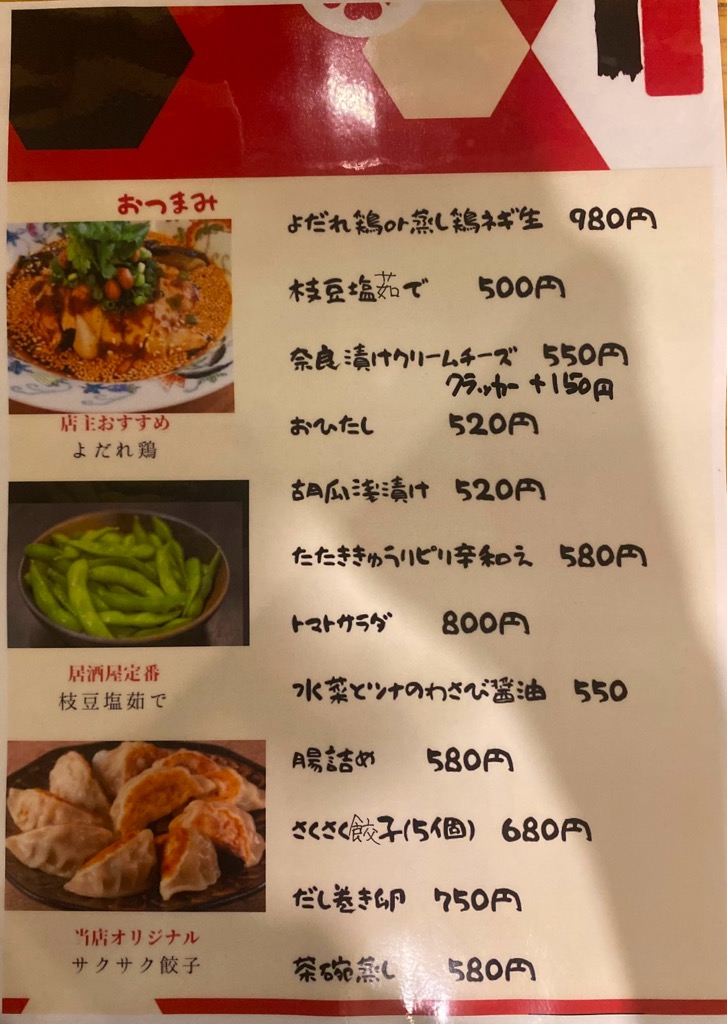 おつまみ
よだれ鶏or蒸し鶏ネギ生 980円
枝豆塩茹で 500円
奈良漬けクリームチーズ 550円
クラッカー +150円
おひたし 520円
胡瓜浅漬け 520円
たたききゅうりピリ辛和え 580円
トマトサラダ 800円
水菜とツナのわさび醤油 550
腸詰め 580円
さくさく餃子(5個) 680円
だし巻き卵 750円
茶碗蒸し 580円
店主おすすめ
よだれ鶏
居酒屋定番
枝豆塩茹で
当店オリジナル
サクサク餃子